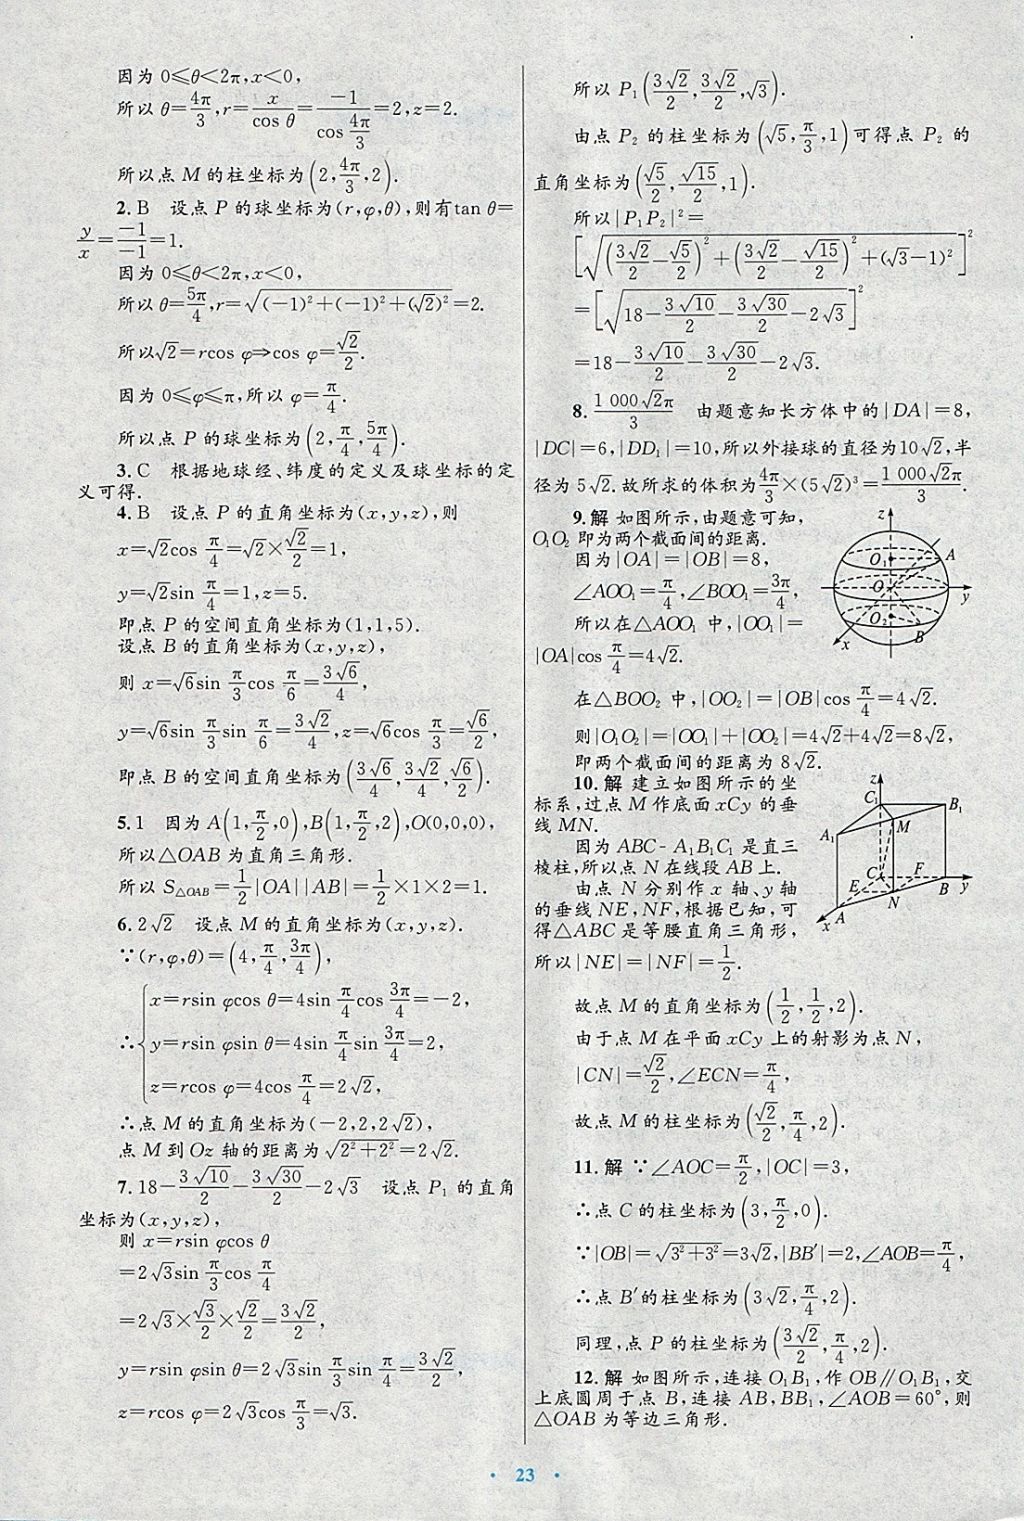 因为 0≤θ<2π,x<0,
所以 θ=4π/3,r=x/cos θ=-1/cos 4π/3=2,z=2.
所以点 M 的柱坐标为(2,4π/3,2).
2.B 设点 P 的球坐标为(r,φ,θ),则有tan θ=
y/x=-1/-1=1.
因为 0≤θ<2π,x<0,
所以 θ=5π/4,r=√((-1)²+(-1)²+(√2)²)=2.
所以√2=rcos φ⇒cos φ=√2/2.
因为 0≤φ≤π,所以 φ=π/4.
所以点 P 的球坐标为(2,π/4,5π/4).
3.C 根据地球经、纬度的定义及球坐标的定
义可得.
4.B 设点 P 的直角坐标为(x,y,z),则
x=√2cos π/4=√2×√2/2=1,
y=√2sin π/4=1,z=5.
即点 P 的空间直角坐标为(1,1,5).
设点 B 的直角坐标为(x,y,z),
则 x=√6sin π/3cos π/6=3√6/4,
y=√6sin π/3sin π/6=3√2/4,z=√6cos π/3=√6/2,
即点 B 的空间直角坐标为(3√6/4,3√2/4,√6/2).
5.1 因为 A(1,π/2,0),B(1,π/2,2),O(0,0,0),
所以△OAB 为直角三角形.
所以 S△OAB=1/2|OA||AB|=1/2×1×2=1.
6.2√2 设点 M 的直角坐标为(x,y,z).
∵(r,φ,θ)=(4,π/4,3π/4),
∴{x=rsin φcos θ=4sin π/4cos 3π/4=-2,
y=rsin φsin θ=4sin π/4sin 3π/4=2,
z=rcos φ=4cos π/4=2√2,
∴点 M 的直角坐标为(-2,2,2√2),
点 M 到 Oz 轴的距离为√(2²+2²)=2√2.
7.18-3√10/2-3√30/2-2√3 设点 P₁ 的直角
坐标为(x,y,z),
则 x=rsin φcos θ
=2√3sin π/3cos π/4
=2√3×√3/2×√2/2=3√2/2,
y=rsin φsin θ=2√3sin π/3sin π/4=3√2/2,
z=rcos φ=2√3cos π/3=√3.
所以 P₁(3√2/2,3√2/2,√3).
由点 P₂ 的柱坐标为(√5,π/3,1)可得点 P₂ 的
直角坐标为(√5/2,√15/2,1).
所以|P₁P₂|²=
[√((3√2/2-√5/2)²+(3√2/2-√15/2)²+(√3-1)²)]²
=[√(18-3√10/2-3√30/2-2√3)]²
=18-3√10/2-3√30/2-2√3.
8.1 000√2π/3 由题意知长方体中的|DA|=8,
|DC|=6,|DD₁|=10,所以外接球的直径为10√2,半
径为 5√2.故所求的体积为4π/3×(5√2)³=1 000√2π/3.
9.解 如图所示,由题意可知,
O₁O₂ 即为两个截面间的距离.
因为|OA|=|OB|=8,
∠AOO₁=π/4,∠BOO₁=3π/4,
所以在△AOO₁ 中,|OO₁|=
|OA|cos π/4=4√2.
z
O₁
A
O
y
O₂
B
x
在△BOO₂ 中,|OO₂|=|OB|cos π/4=4√2.
则|O₁O₂|=|OO₁|+|OO₂|=4√2+4√2=8√2,
即两个截面间的距离为 8√2.
10.解 建立如图所示的坐
标系,过点 M 作底面 xCy 的垂
线 MN.
因为 ABC-A₁B₁C₁ 是直三
棱柱,所以点 N 在线段 AB 上.
由点 N 分别作 x 轴、y 轴
的垂线 NE,NF,根据已知,可
得△ABC 是等腰直角三角形,
所以|NE|=|NF|=1/2.
z
C₁
B₁
M
A₁
C
F
E
B
y
N
A
x
故点 M 的直角坐标为(1/2,1/2,2).
由于点 M 在平面 xCy 上的射影为点 N,
|CN|=√2/2,∠ECN=π/4,
故点 M 的柱坐标为(√2/2,π/4,2).
11.解 ∵∠AOC=π/2,|OC|=3,
∴点 C 的柱坐标为(3,π/2,0).
∵|OB|=√(3²+3²)=3√2,|BB′|=2,∠AOB=π/4,
∴点 B′的柱坐标为(3√2,π/4,2).
同理,点 P 的柱坐标为(3√2/2,π/4,2).
12.解 如图所示,连接 O₁B₁,作 OB∥O₁B₁,交
上底圆周于点 B,连接 AB,BB₁,∠AOB=60°,则
△OAB 为等边三角形.
· 23 ·